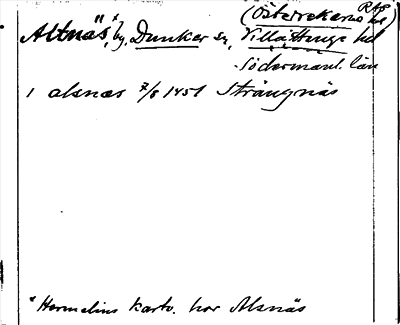 (Österrekarne hd
RAP
Altnäs,* by, Dunker sn, Villåttinge hd
Södermanl. län
1 alsnæs 7/8 1451 Strängnäs
* Hermelins kartv. har Alsnäs